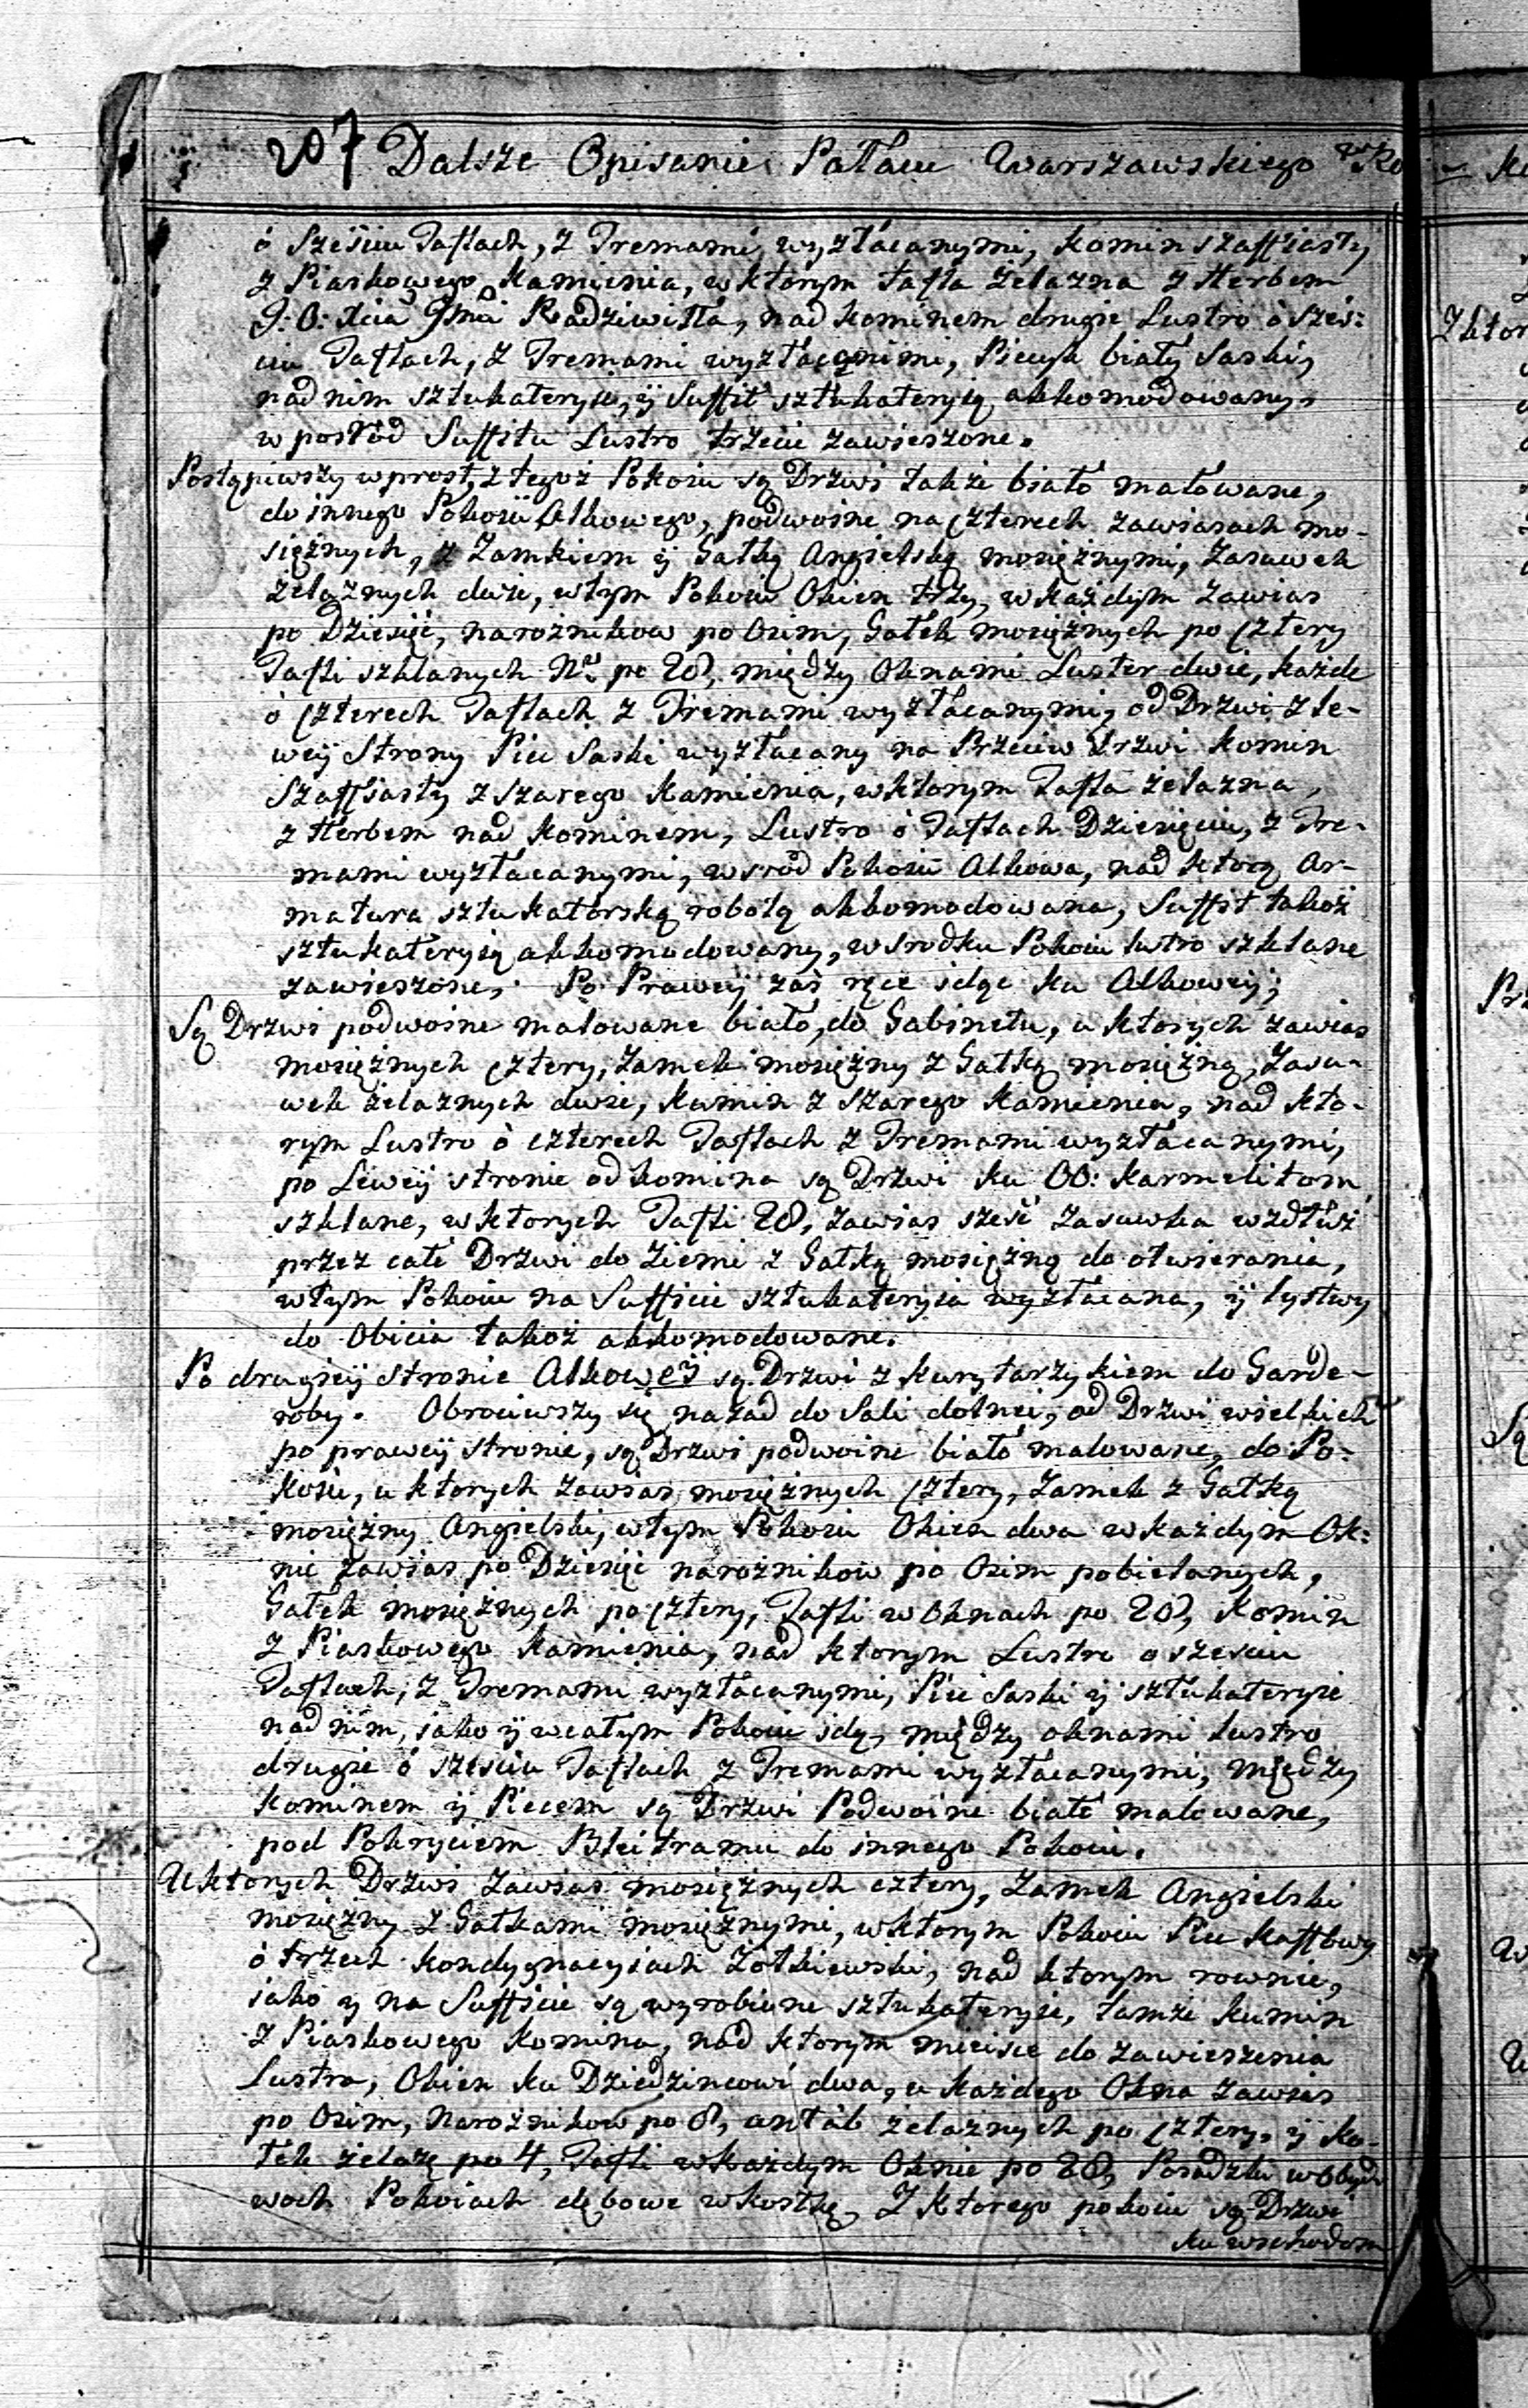 207 Dalsze Opisanie Pałacu Warszawskiego
ó Sześciu Taflach, z Tremami wyzłacanymi, Komin szaffiasty
z Piaskowego Kamienia, w ktorym tafla żelazna z Herbem
J: O: Xcia Jmci Radziwiłła, nad Kominem drugie Lustro ó sześ:
ciu Taflach, z Tremami wyzłacanimi, Piecyk biały Saski,
nad nim sztukateryie, ÿ Suffit sztukateryią akkomodowany,
w posród Suffitu Lustro trzecie zawieszone.
Postąpiwszy wprost, z tegoż Pokoiu są Drzwi także biało malowane,
do innego Pokoiu Alkowego, podwoine na czterech zawiasach mo-
siężnych, z Zamkiem ÿ Gałką Angielską mosiężnymi, Zasuwek
żelaznych dwie, w tym Pokoiu Okien trzy, w każdym zawias
po Dziesięć, narożnikow po Osim, Gałek mosiężnych po cztery
Tafli szklanych Nrō po 28, między Oknami Luster dwie, każde
ó czterech Taflach z Tremami wyzłacanymi, od Drzwi z le-
wÿ Strony Piec Saski wyzłacany na Przeciw Drzwi Komin
Szaffiasty z szarego Kamienia, w ktorym Tafla żelazna,
z Herbem nad Kominem, Lustro ó Taflach Dziesięciu, z Tre-
mami wyzłacanymi, wsród Pokoiu Alkowa, nad ktorą Ar-
matura sztukatorską robotą akkomodowana, Suffit takoż
sztukateryią akkomodowany, w srodku Pokoiu lustro szklane
zawieszone. Po Prawey zaś ręce idąc ku Alkowey;
Są Drzwi podwoine malowane biało, do Gabinetu, u ktorych zawias
mosiężnych cztery, Zamek mosiężny z Gałką mosiężną, Zasu-
wek żelaznych dwie, Kumin z szarego Kamienia, nad kto-
rym Lustro ó czterech Taflach z Tremami wyzłacanymi,
po Lewey stronie od komina są Drzwi ku OO: Karmelitom
szklane, w ktorych Tafli 28, zawias sześć zasuwka wzdłuż
przez całe Drzwi do ziemi z Gałką mosiężną do otwierania,
w tym Pokoiu na Suffiecie sztukateryia wyzłacana, ÿ lystwy
do Obicia takoż akkomodowane.
Po drugiey stronie Alkowey są Drzwi z Kurytarzykiem do Garde-
roby. Obrociwszy się nazad do Sali dolnei, od Drzwi wielkich
po prawey stronie, są Drzwi podwoine biało malowane, do Po-
koiu, u ktorych zawias mosiężnych cztery, Zamek z Gałką
mosiężny Angielski, w tym Pokoiu Okien dwa w każdym Ok:
nie zawias po Dziesięć narożnikow po Osim pobielanych,
Gałek mosiężnych po cztery, Tafli w Oknach po 28, Komin
z Piaskowego Kamienia, nad ktorym Lustro o sześciu
Taflach, z Tremami wyzłacanymi, Piec Saski ÿ sztukateryie
nad nim, iako ÿ w całym Pokoiu idą, między oknami lustro
drugie ó sześciu Taflach z Tremami wyzłacanymi, między
Kominem ÿ Piecem są Drzwi Podwoine biało malowane,
pod Pokryciem Bleitramu do innego Pokoiu.
U ktorych Drzwi zawias mosiężnych cztery, Zamek Angielski
mosiężny z Gałkami mosiężnymi, w ktorym Pokoiu Piec Kafflowy
ó trzech Kondygnacyiach Żołkiewski, nad ktorym rownie,
iako ÿ na Suffiecie są wyrobione sztukateryie, tamże Kumin
z Piaskowego Komina, nad ktorym mieisce do zawieszenia
Lustra, Okien ku Dziedzincowi dwa, u każdego Okna zawias
po Osim, Narożnikow po 8, antab żelaznych po cztery, ÿ Ko-
łek żelazn po 4, Tafli w każdym Oknie po 28, Posadzki w Obyd
woch Pokoiach dębowe w kostkę, Z ktorego pokoiu są Drzwi
ku wschodom